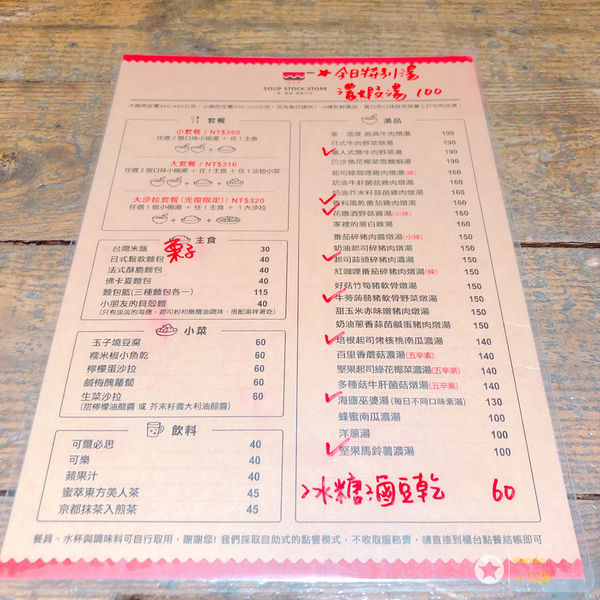 ★今日特別湯
濃蝦湯 100
SOUP STOCK STORE
套餐
小套餐 / NT$260
任選2個口味小碗湯 + 任1主食
大套餐 / NT$310
任選2個小碗湯 + 任1主食 + 1沙拉小菜
大沙拉套餐(光復限定) / NT$320
任選1個小碗湯 + 任1主食 + 1大沙拉
主食
台灣米飯 30
栗子
日式鬆軟麵包 40
法式酥脆麵包 40
佛卡夏麵包 40
麵包籃(三種麵包各一) 115
小朋友的貝殼麵 40
(只有淡淡的海鹽、起司粉和橄欖油調味，搭配湯拌著吃)
小菜
玉子燒豆腐 60
糯米椒小魚乾 60
檸檬蛋沙拉 60
鹹梅醃蘿蔔 60
生菜沙拉 60
(甜檸檬油醋醬 或 芥末籽義大利油醋醬)
飲料
可爾必思 40
可樂 40
蘋果汁 40
蜜萃東方美人茶 45
京都抹茶入煎茶 45
湯品
家．溫度 經典牛肉燉湯 190
日式牛肉野菜燉湯 190
獵人式燉牛肉野菜湯 190
巴沙魚花椰菜雪麵蝦湯 190
起司綠咖哩雞肉燉湯(辣) 160
奶油牛肝菌菇雞肉燉湯 160
奶油芥末籽蒜苗雞肉燉湯 160
香料風乾番茄雞肉燉湯 160
花雕酒野菇雞湯(小辣) 160
家裡的蔥白雞湯 160
番茄碎豬肉醬燉湯(小辣) 150
奶油起司碎豬肉燉湯 150
起司蒜頭碎豬肉濃湯 150
紅咖哩番茄碎豬肉湯(辣) 150
好菇竹筍豬軟骨燉湯 150
牛蒡蒟蒻豬軟骨野菜燉湯 150
甜玉米赤味噌豬肉燉湯 150
奶油蔥香蒜苗鹹蛋豬肉燉湯 150
培根起司烤核桃南瓜濃湯 140
百里香蘑菇濃湯(五辛素) 140
堅果起司綠花椰菜濃湯(五辛素) 140
多種菇牛肝菌菇燉湯(五辛素) 140
海鹽巫婆湯(每日不同口味素湯) 130
蜂蜜南瓜濃湯 100
洋蔥湯 100
堅果馬鈴薯濃湯 100
冰糖滷豆乾 60
餐具、水杯與調味料可自行取用，謝謝您! 我們採取自助式的點餐模式，不收取服務費，請直接到櫃台點餐結帳即可